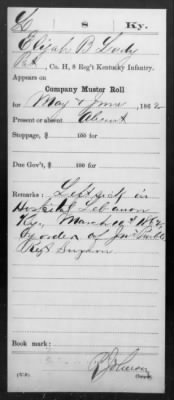 L 8 Ky.
Elijah B Lody
Pvt, Co. H, 8 Reg't Kentucky Infantry.
Appears on
Company Muster Roll
for May & June, 1862
Present or absent Absent
Stoppage, $ 100 for
Due Gov't, $ 100 for
Remarks: Left sick in
Hospital Lebanon
Ky, March 1862
by order of Jno
Regt Surgeon
Book mark:
Copyist.